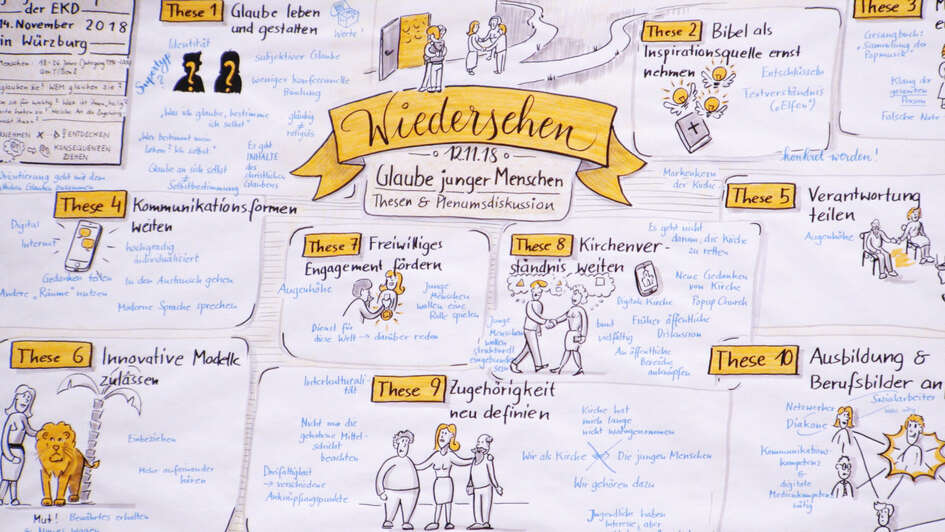 der EKD
14. November 2018
in Würzburg
These 1
Glaube leben
und gestalten
Werte!
Identität
subjektiver Glaube
weniger konfessionelle
Bindung
"Was ich glaube, bestimme
ich selbst"
gläubig
≠
religiös
"Was bestimmt mein
Leben? Ich selbst."
Es gibt
INHALTE
des
christlichen
Glaubens
Glaube an sich selbst
≠
Selbstbestimmung
ENTDECKEN
KONSEQUENZEN
ZIEHEN
Wiedersehen
12.11.18
Glaube junger Menschen
Thesen & Plenumsdiskussion
These 2
Bibel als
Inspirationsquelle ernst
nehmen
Entschlüsseln
Textverständnis
("Elfen")
These 3
Gesangbuch:
"Sammlung der
Popmusik"
Klang der
gesamten
Person
Falsche Note
konkret werden!
Markenkern
der Kirche
These 4
Kommunikationsformen
weiten
Digital
Internet
hochgradig
individualisiert
Gedanken teilen
In den Austausch gehen
Andere "Räume" nutzen
Moderne Sprache sprechen
These 5
Verantwortung
teilen
Augenhöhe
These 7
Freiwilliges
Engagement fördern
Augenhöhe
Junge
Menschen
wollen eine
Rolle spielen
Dienst für
diese Welt → darüber reden
These 8
Kirchenver-
ständnis weiten
Es geht nicht
darum, die Kirche
zu retten
Neue Gedanken
von Kirche
Digitale Kirche
Popup Church
Junge
Menschen
wollen
strukturell
eingebunden
sein
bunt
vielfältig
Früher öffentliche
Diskussion
An öffentliche
Bereiche
anknüpfen
These 6
Innovative Modelle
zulassen
Einbeziehen
Mehr aufeinander
hören
Mut!
Bewährtes erhalten
These 9
Zugehörigkeit
neu definien
Interkulturali-
tät
Nicht nur die
gehobene Mittel-
schicht
beachten
Dreifaltigkeit
→ verschiedene
Anknüpfungspunkte
Kirche hat
mich lange
nicht wahrgenommen
Wir als Kirche
Die jungen Menschen
Wir gehören dazu
Jugendliche haben
Interesse, aber
These 10
Ausbildung &
Berufsbilder an
Netzwerker
Sozialarbeiter
Diakone
Kommunikations-
kompetenz
&
digitale
Medienkompetenz
nötig